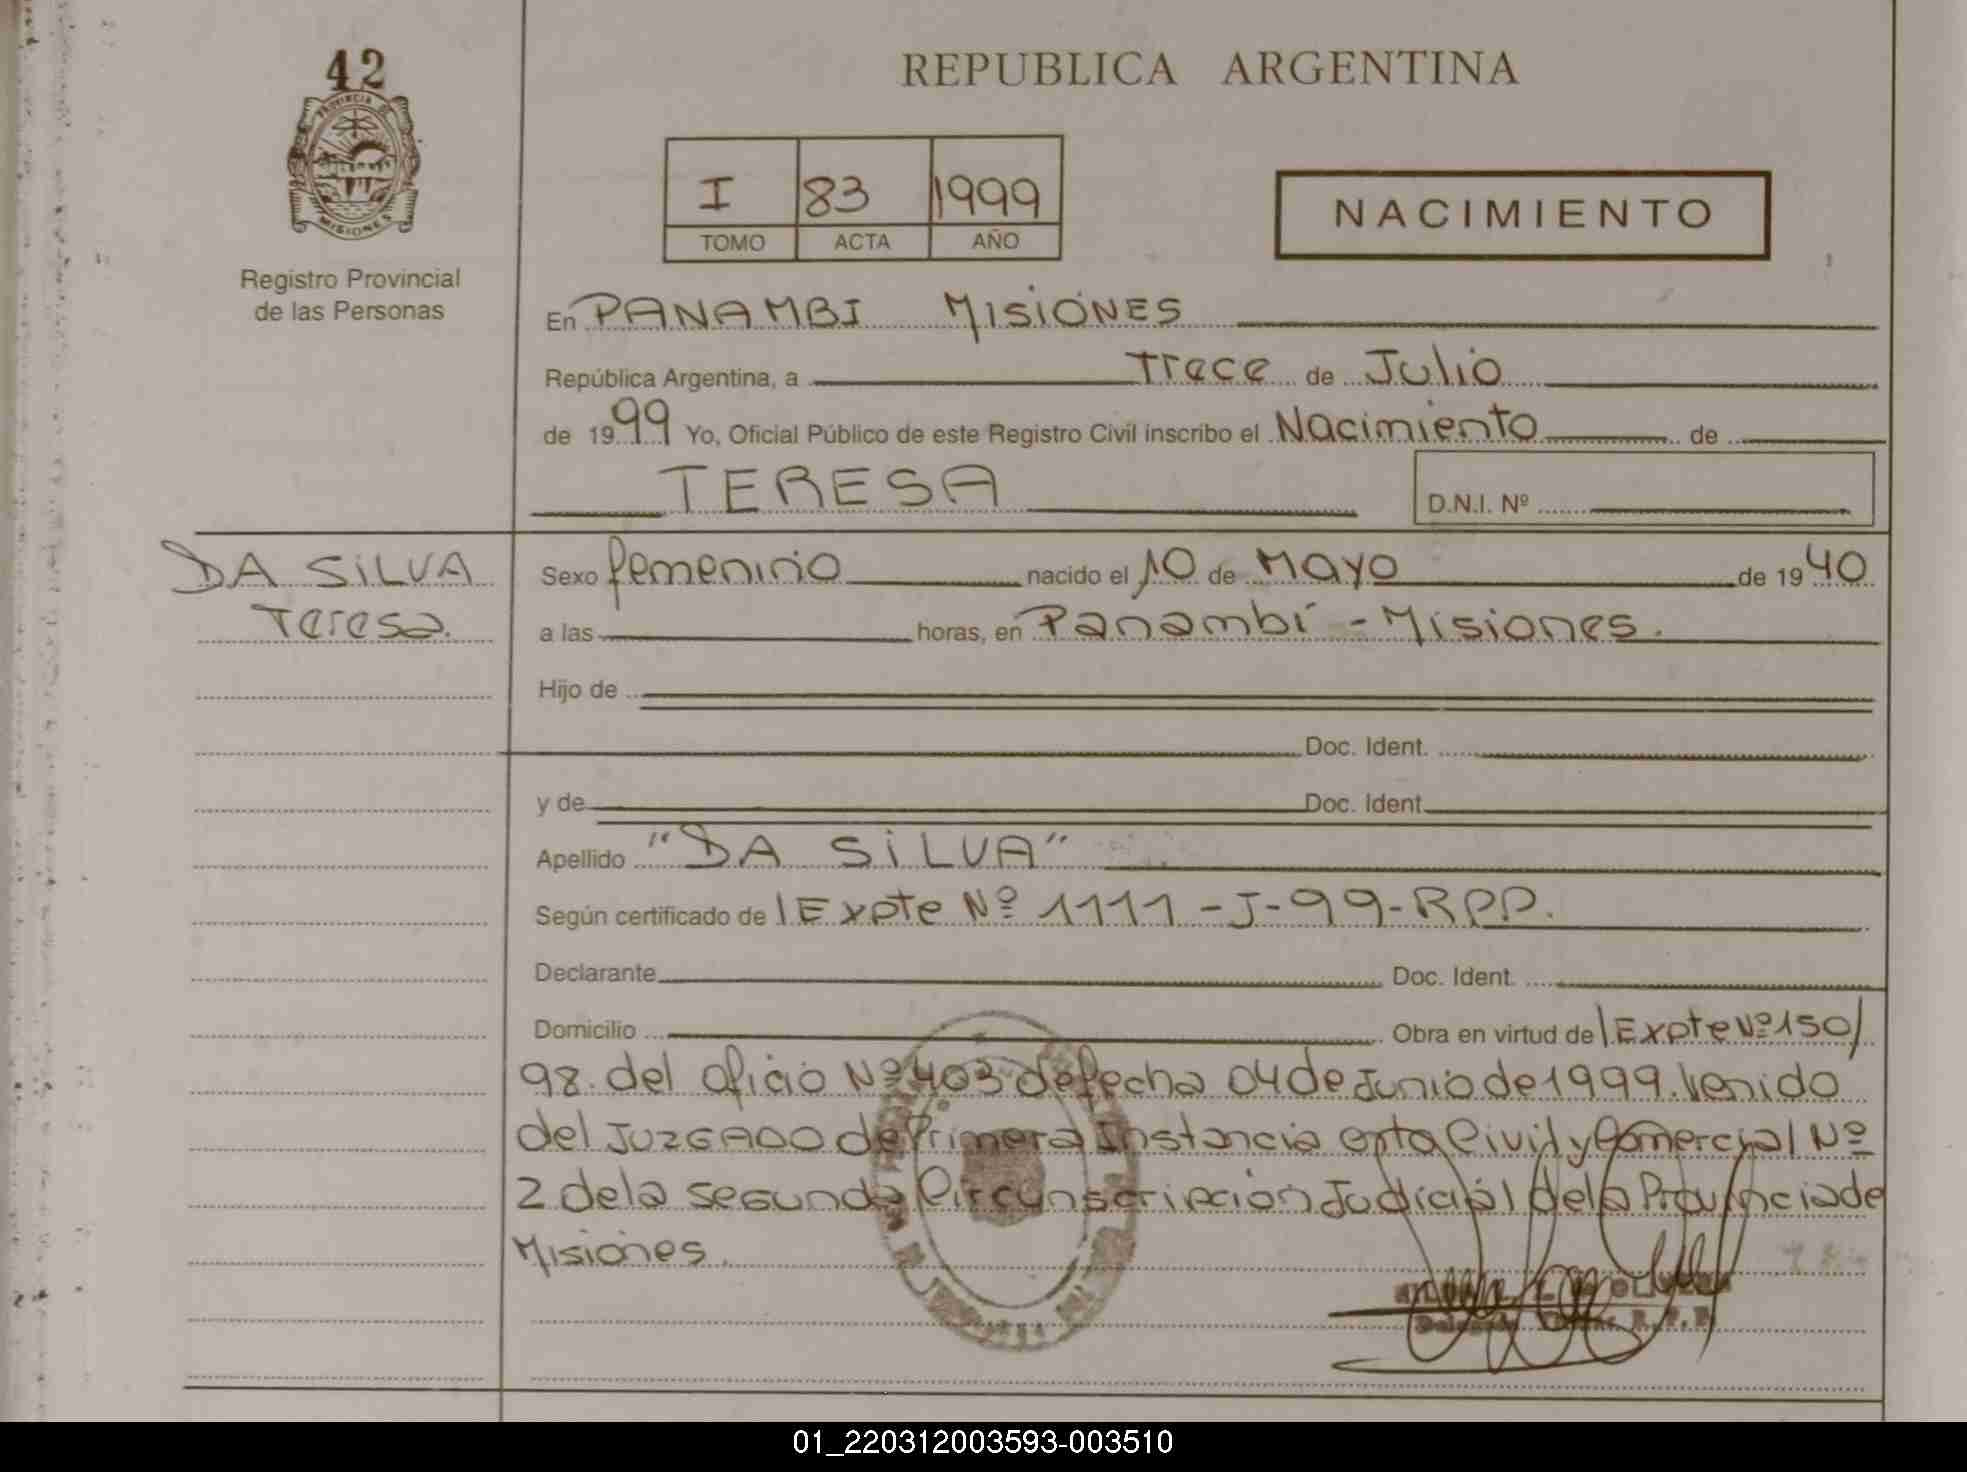 42
PROVINCIA DE
MISIONES
Registro Provincial
de las Personas
REPUBLICA ARGENTINA
I 83 1999
TOMO ACTA AÑO
NACIMIENTO
En PANAMBI MISIONES
República Argentina, a trece de Julio
de 1999 Yo, Oficial Público de este Registro Civil inscribo el Nacimiento de
TERESA
D.N.I. Nº
DA SILVA
Teresa.
Sexo femenino nacido el 10 de Mayo de 1940
a las horas, en Panambí - Misiones.
Hijo de
Doc. Ident.
y de Doc. Ident.
Apellido "DA SILVA"
Según certificado de Expte Nº 1111-J-99-RPP.
Declarante Doc. Ident.
Domicilio Obra en virtud de Expte Nº 150/
98. del oficio Nº 403 de fecha 04 de Junio de 1999. Venido
del JUZGADO de Primera Instancia en lo Civil y Comercial Nº
2 de la segunda Circunscripción Judicial de la Provincia de
Misiones.
R.P.P.
01_220312003593-003510